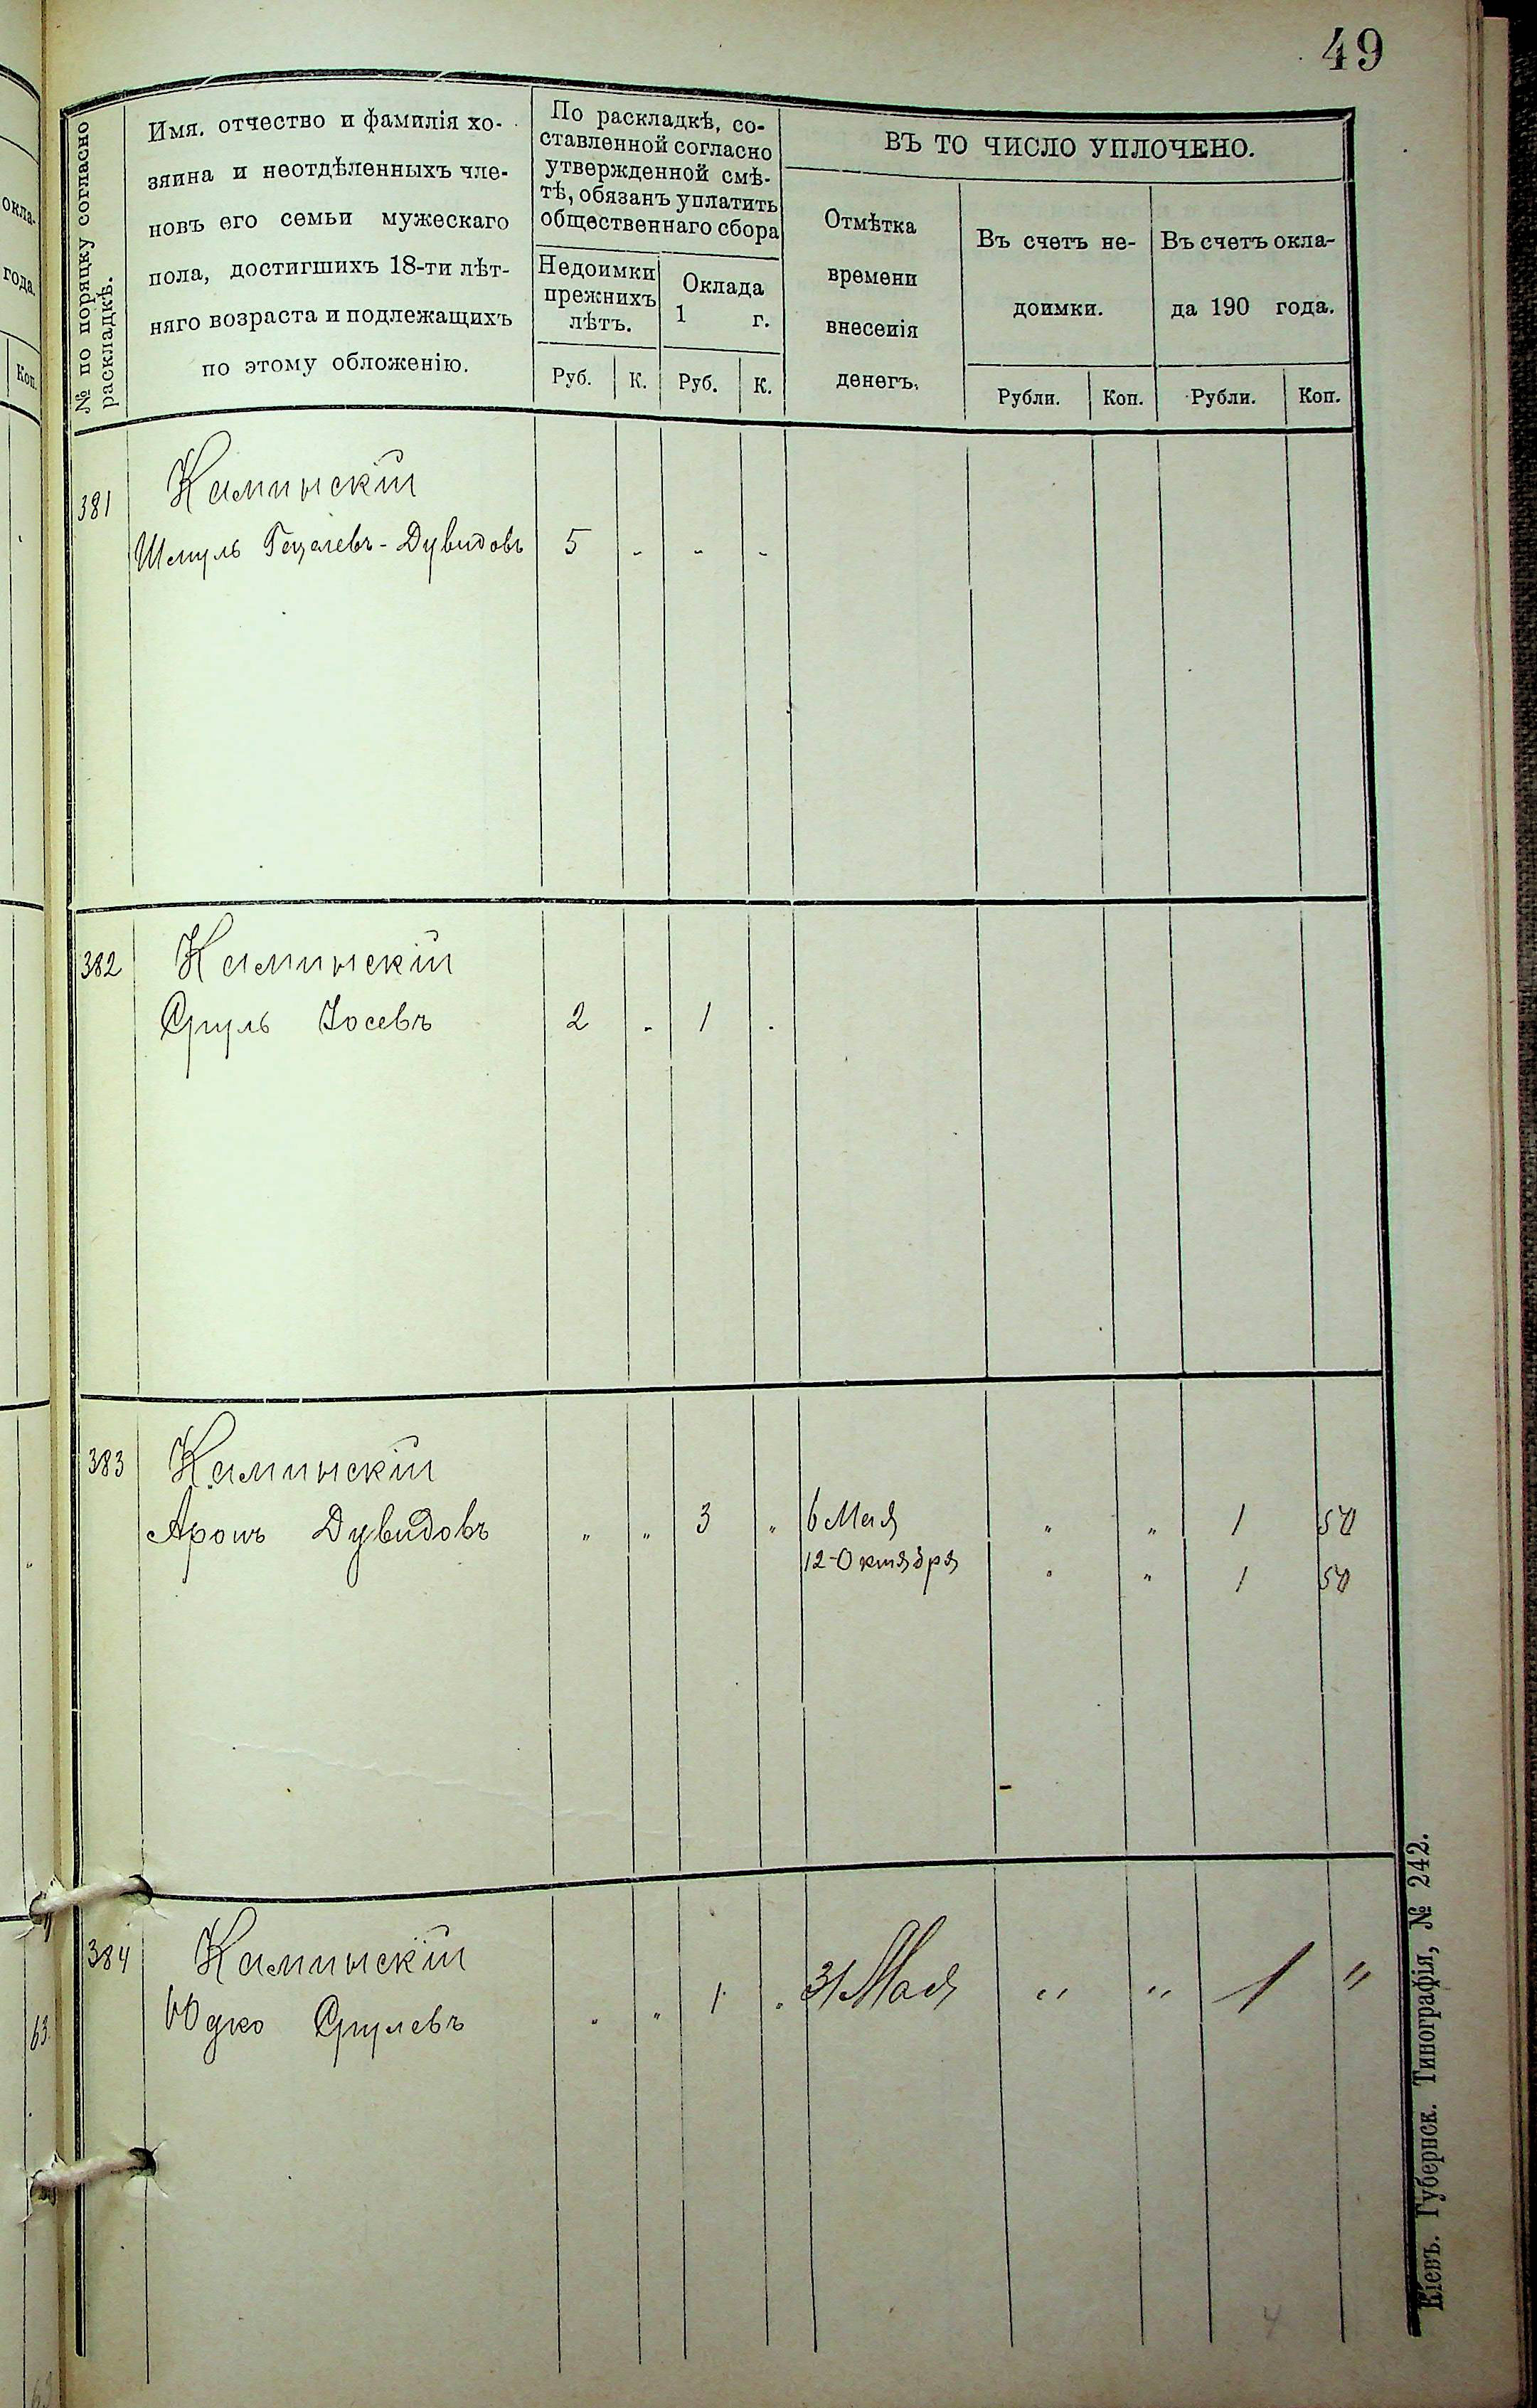 49
№ по порядку согласно раскладкѣ.
Имя, отчество и фамилія хо-
зяина и неотдѣленныхъ чле-
новъ его семьи мужескаго
пола, достигшихъ 18-ти лѣт-
няго возраста и подлежащихъ
по этому обложенію.
По раскладкѣ, со-
ставленной согласно
утвержденной смѣ-
тѣ, обязанъ уплатить
общественнаго сбора
Недоимки
прежнихъ
лѣтъ.
Оклада
1 г.
Руб. К. Руб. К.
ВЪ ТО ЧИСЛО УПЛОЧЕНО.
Отмѣтка
времени
внесенія
денегъ.
Въ счетъ не-
доимки.
Въ счетъ окла-
да 190 года.
Рубли. Коп. Рубли. Коп.
381 Каминскій
Шмуль Гецелевъ-Дувидовъ 5 - - -
382 Каминскій
Сруль Іосевъ 2 . 1 .
383 Каминскій
Аронъ Дувидовъ " " 3 " 6 Мая " " 1 50
12 Октября " " 1 50
384 Каминскій
Юдко Срулевъ " " 1 " 31 Мая " " 1 "
Кіевъ. Губернск. Типографія, № 242.
окла-
года.
Коп.
63